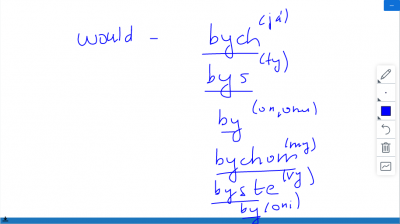 would - bych (já)
bys (ty)
by (on, ona)
bychom (my)
byste (vy)
by (oni)